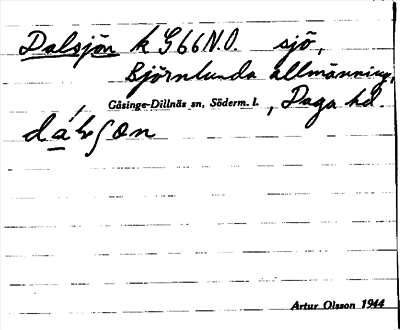 Dalsjön k G66N.O. sjö,
Björnlunda allmänning,
Gåsinge-Dillnäs sn, Söderm. l., Daga hd.
Artur Olsson 1944